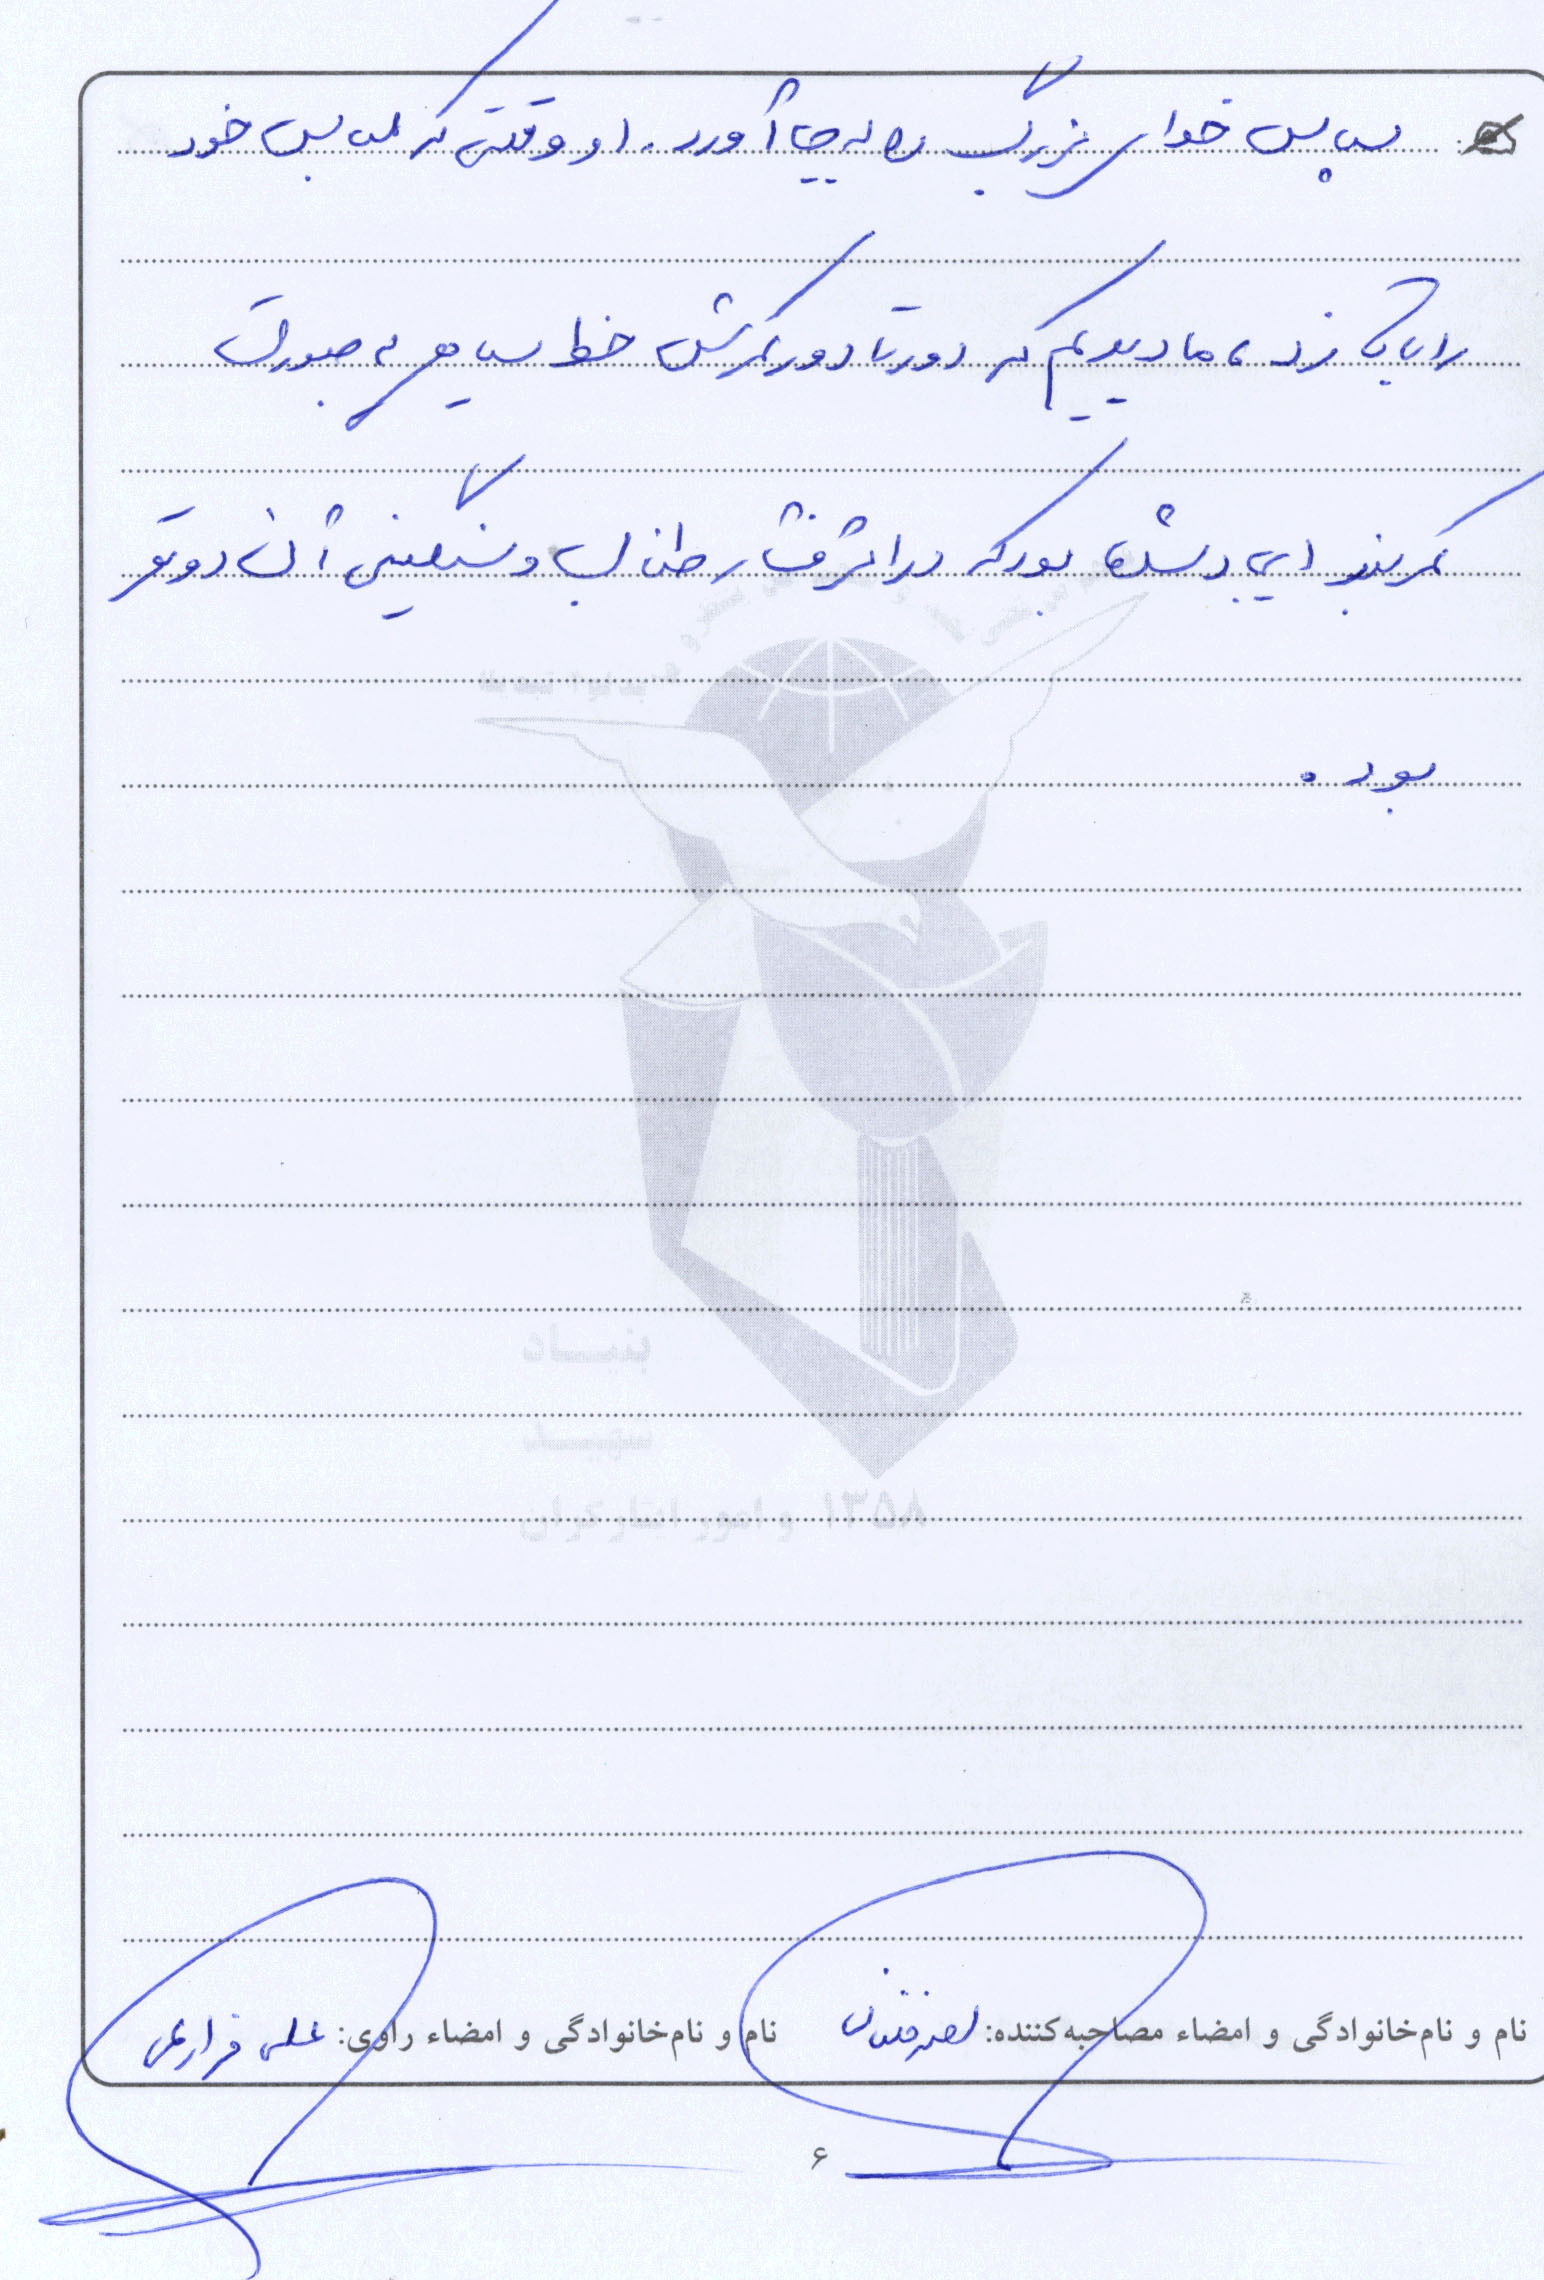 سپاس خدای بزرگ را به جا آورد. او وقتی که لباس خود
را بالا زد، ما دیدیم که دور تا دور کمرش خط سیاهی به صورت
کمربند ایجاد شده بود که در اثر فشار طناب و سنگینی آن دو نفر
بود.
بنیاد
شهید
و امور ایثارگران ۱۳۵۸
نام و نام‌خانوادگی و امضاء مصاحبه‌کننده: نام و نام‌خانوادگی و امضاء راوی: علی
۶